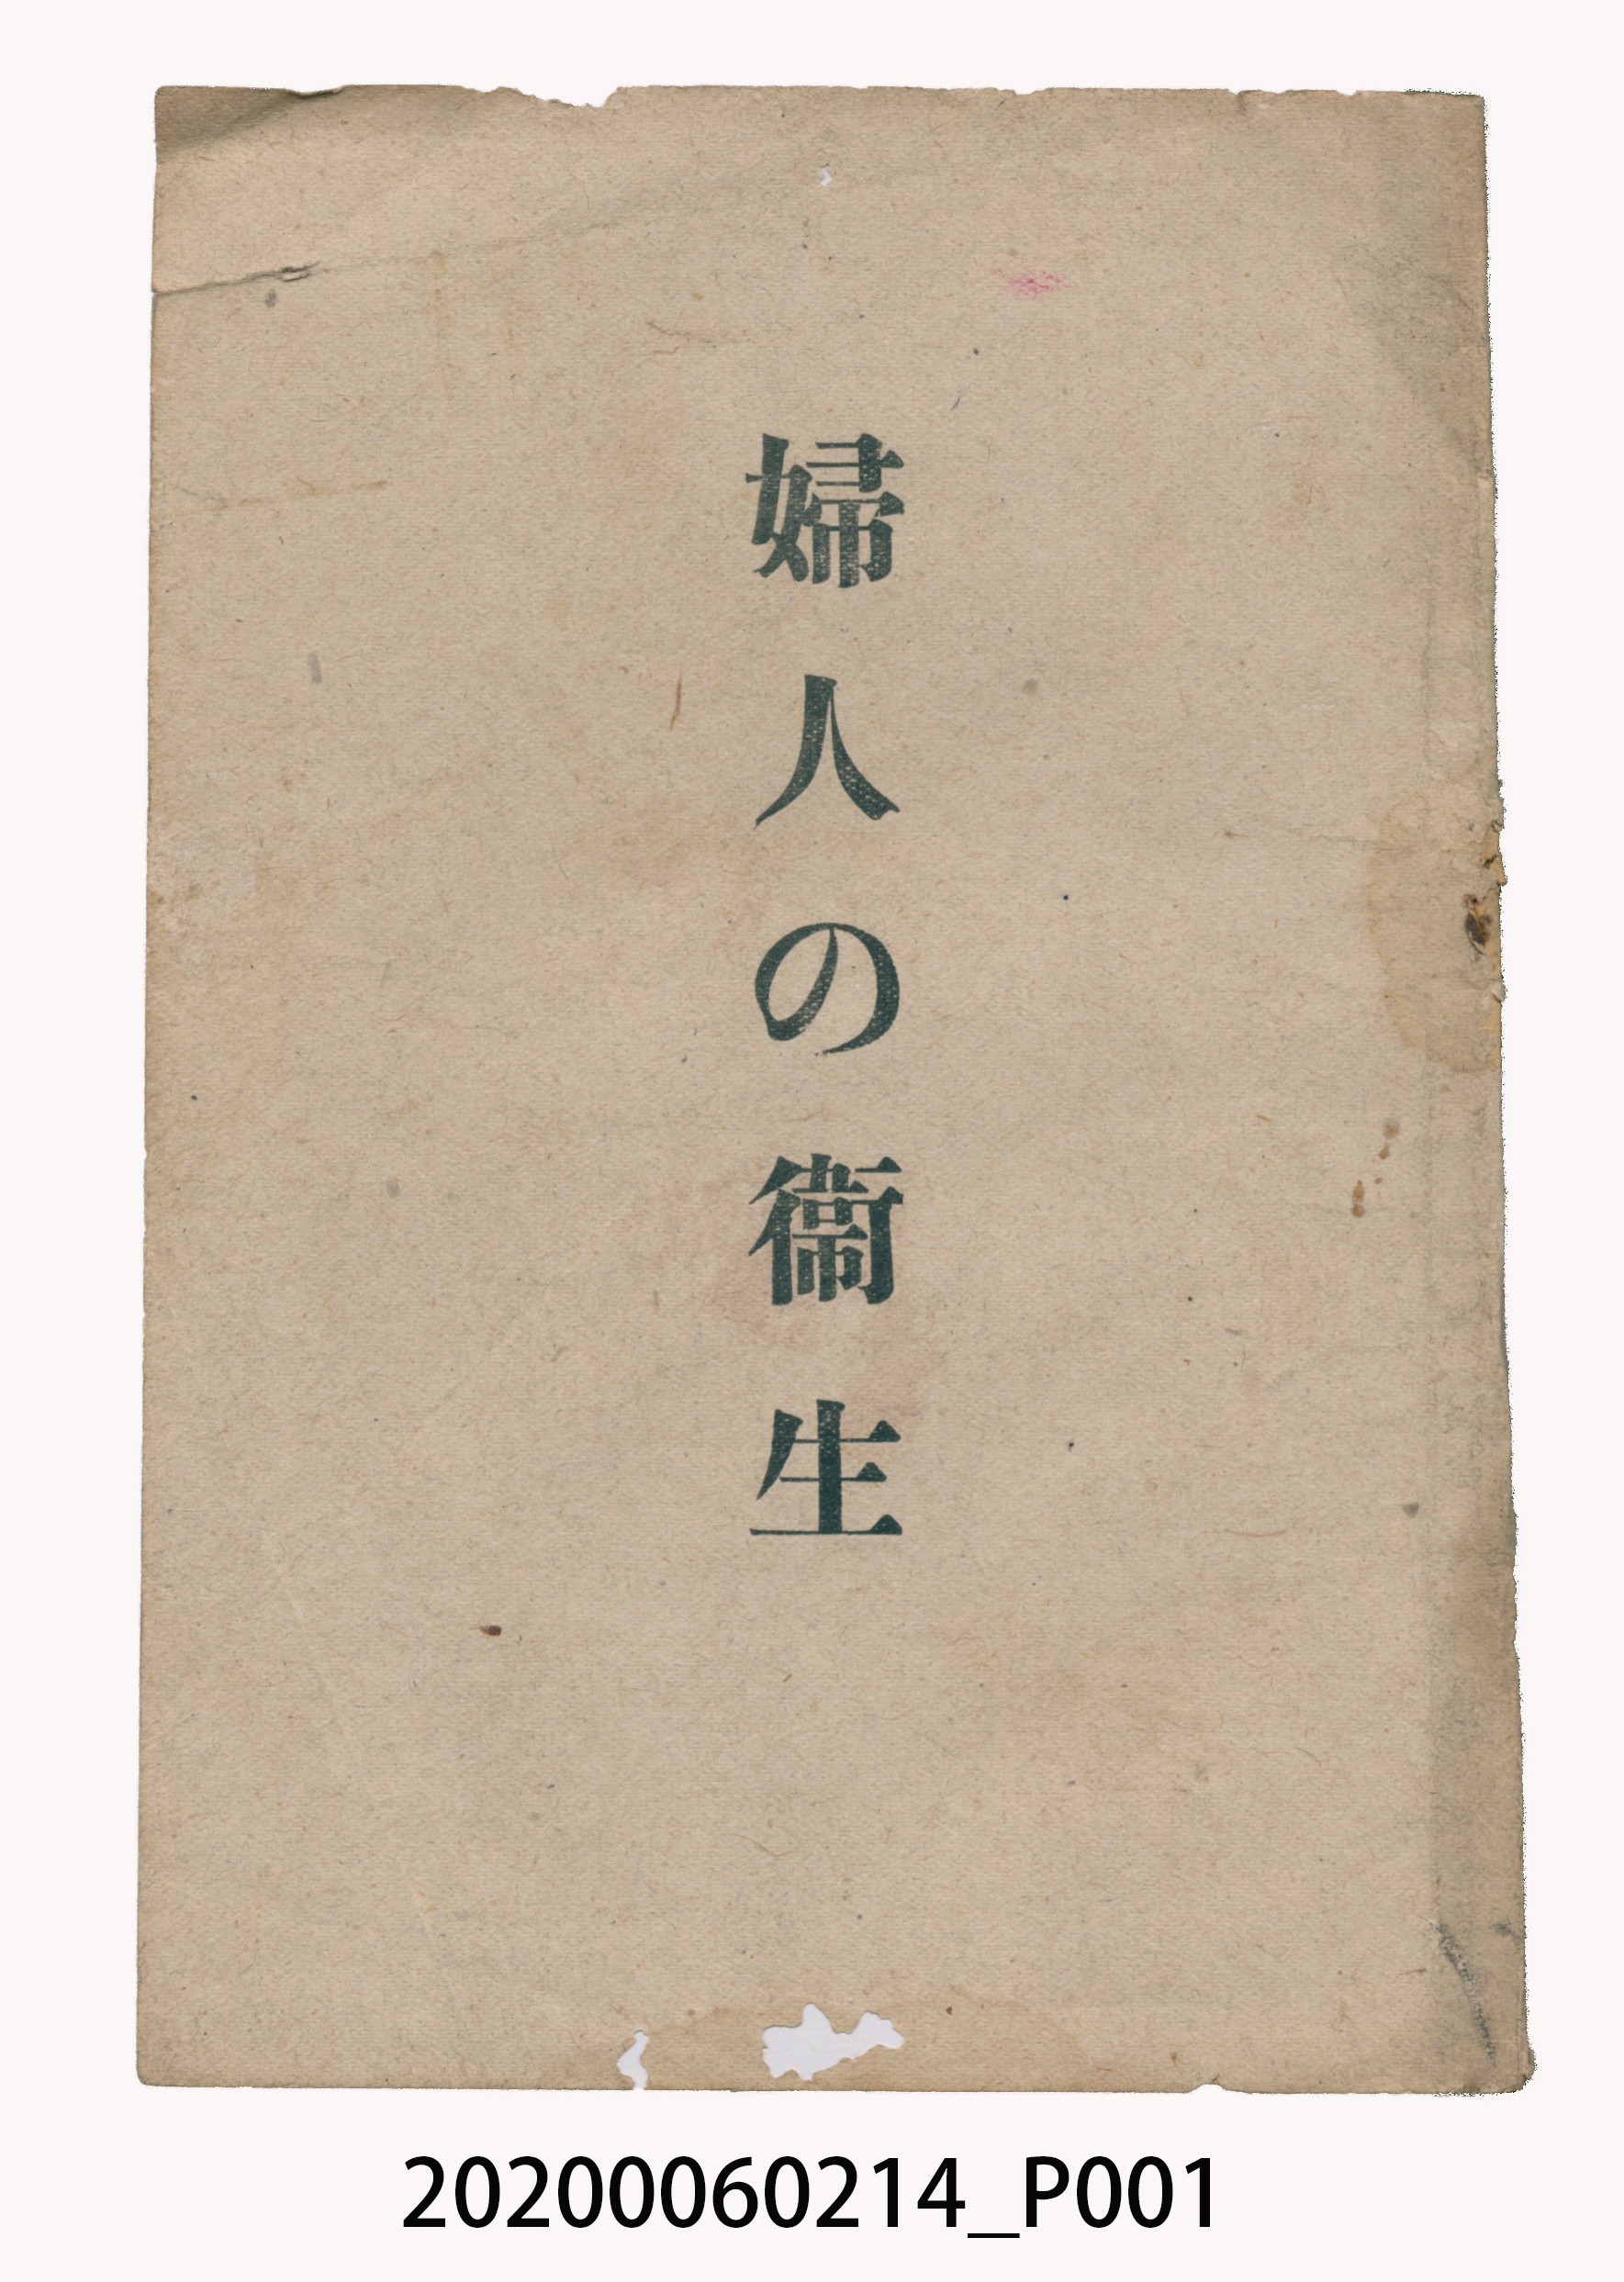 婦人の衞生
20200060214_P001